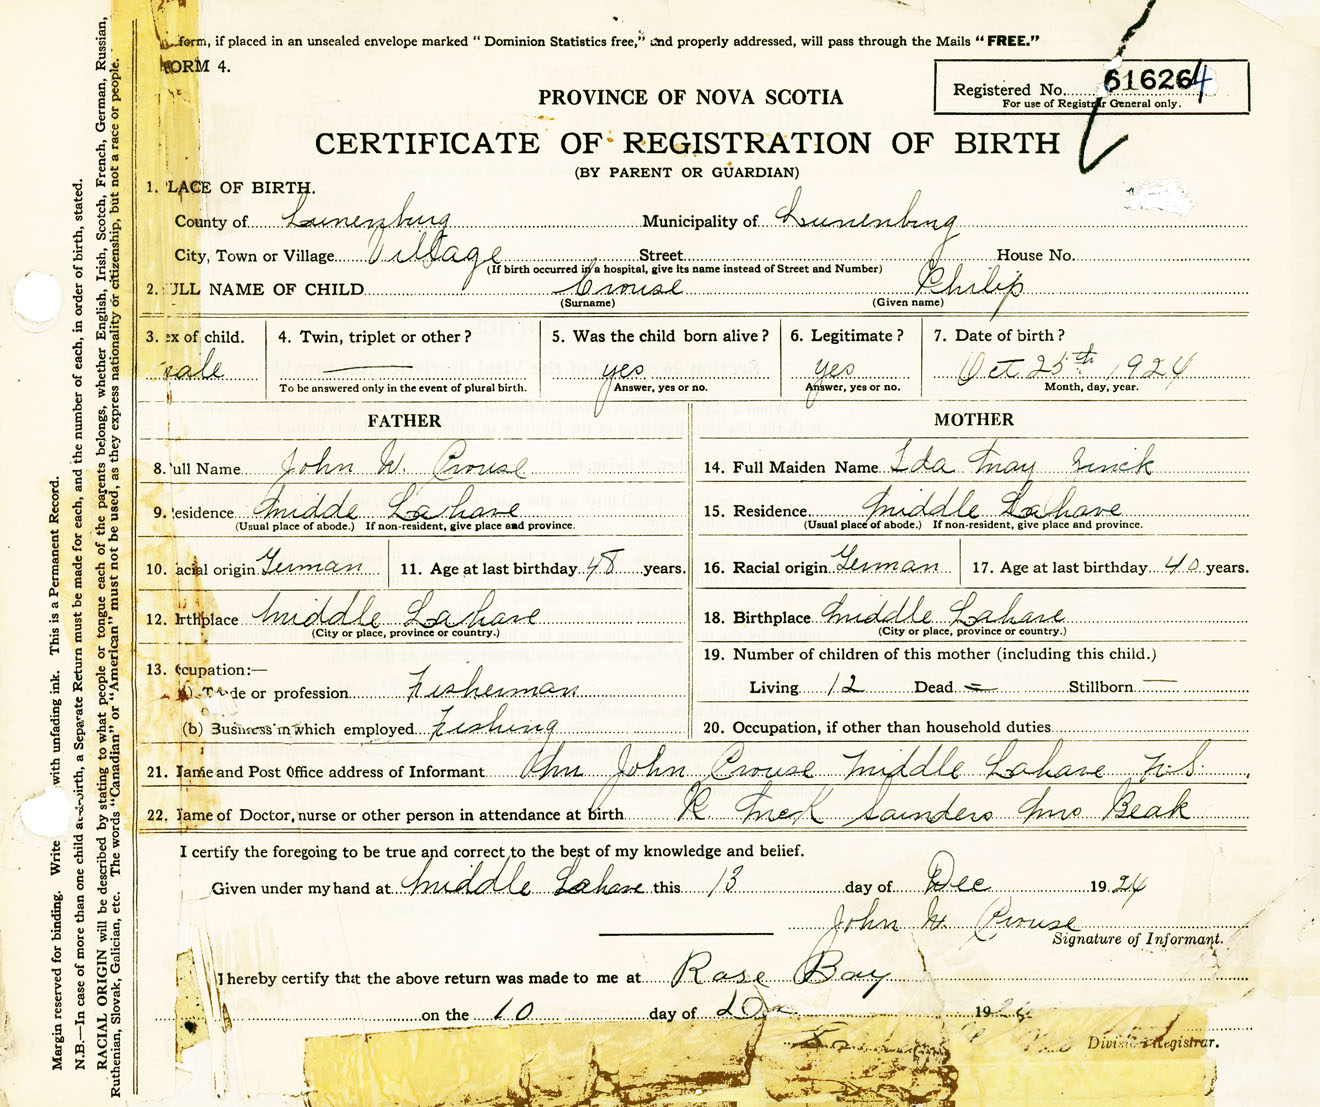 form, if placed in an unsealed envelope marked "Dominion Statistics free," and properly addressed, will pass through the Mails "FREE."
ORM 4.
Registered No. 616264
For use of Registrar General only.
PROVINCE OF NOVA SCOTIA
CERTIFICATE OF REGISTRATION OF BIRTH
(BY PARENT OR GUARDIAN)
1. LACE OF BIRTH.
County of Lunenburg Municipality of Lunenburg
City, Town or Village Village Street House No.
(If birth occurred in a hospital, give its name instead of Street and Number)
2. ULL NAME OF CHILD Crouse Philip
(Surname) (Given name)
3. ex of child. 4. Twin, triplet or other? 5. Was the child born alive? 6. Legitimate? 7. Date of birth?
male — yes yes Oct 25th 1924
To be answered only in the event of plural birth. Answer, yes or no. Answer, yes or no. Month, day, year.
FATHER MOTHER
8. ull Name John W. Crouse 14. Full Maiden Name Ida May Zinck
9. esidence Midde Lahave 15. Residence Middle Lahave
(Usual place of abode.) If non-resident, give place and province. (Usual place of abode.) If non-resident, give place and province.
10. acial origin German 11. Age at last birthday 48 years. 16. Racial origin German 17. Age at last birthday 40 years.
12. irthplace Middle Lahave 18. Birthplace Middle Lahave
(City or place, province or country.) (City or place, province or country.)
19. Number of children of this mother (including this child.)
13. ccupation:—
Living 12 Dead = Stillborn —
Trade or profession Fisherman
(b) Business in which employed Fishing 20. Occupation, if other than household duties
21. Name and Post Office address of Informant John Crouse Middle Lahave N.S.
22. Name of Doctor, nurse or other person in attendance at birth R McK Saunders Mrs Beak
I certify the foregoing to be true and correct to the best of my knowledge and belief.
Given under my hand at Middle Lahave this 13 day of Dec 1924
John W. Crouse
Signature of Informant.
I hereby certify that the above return was made to me at Rose Bay
on the 10 day of 19
Division Registrar.
Margin reserved for binding. Write with unfading ink. This is a Permanent Record.
N.B.—In case of more than one child at a birth, a Separate Return must be made for each, and the number of each, in order of birth, stated.
RACIAL ORIGIN will be described by stating to what people or tongue each of the parents belongs, whether English, Irish, Scotch, French, German, Russian,
Ruthenian, Slovak, Galician, etc. The words "Canadian" or "American" must not be used, as they express nationality or citizenship, but not a race or people.